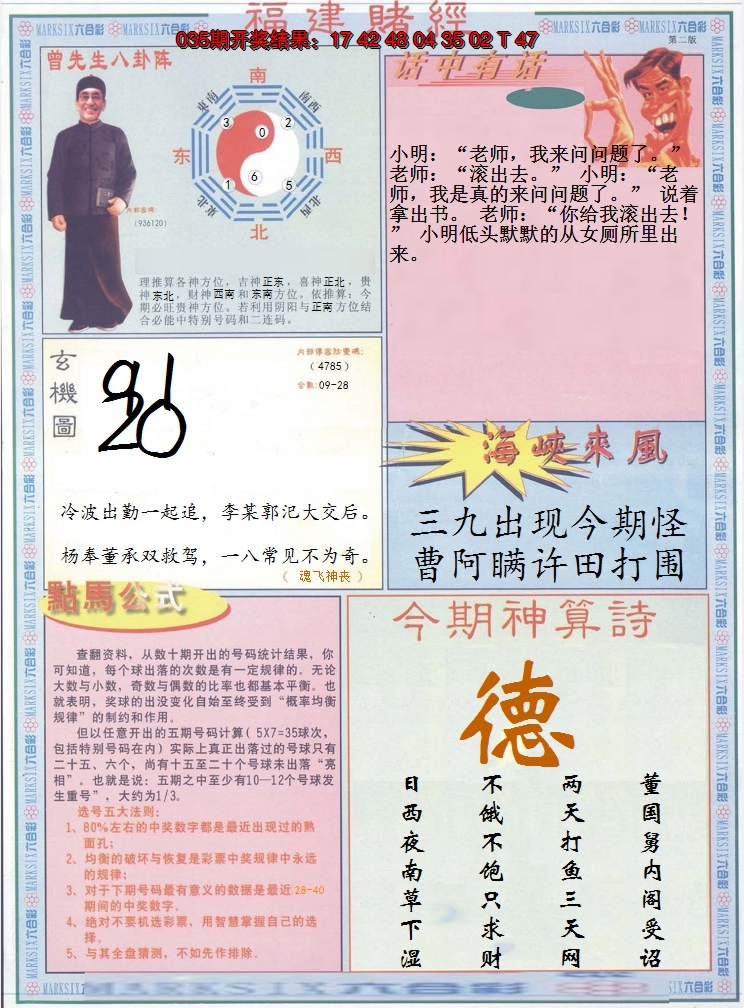 福建賭經
035期开奖结果：17 42 48 04 35 02 T 47
MARKSIX六合彩 MARKSIX六合彩 MARKSIX六合彩 MARKSIX六合彩 MARKSIX六合彩
第二版
曾先生八卦阵
南
東南
西南
3
0
2
东
西
1
6
5
東北
西北
北
内部密碼：
（936120）
理推算各神方位，吉神正东，喜神正北，贵
神东北，财神西南和东南方位。依推算：今
期必旺贵神方位。若利用阴阳与正南方位结
合必能中特别号码和二连码。
话中有话
小明：“老师，我来问问题了。”
老师：“滚出去。” 小明：“老
师，我是真的来问问题了。” 说着
拿出书。 老师：“你给我滚出去！
” 小明低头默默的从女厕所里出
来。
玄機圖
91
20
内部傳密防變碼：
（4785）
合数：09-28
冷波出勤一起追，李某郭汜大交后。
杨奉董承双救驾，一八常见不为奇。
（ 魂飞神丧 ）
海峽來風
三九出现今期怪
曹阿瞒许田打围
點馬公式
查翻资料，从数十期开出的号码统计结果，你
可知道，每个球出落的次数是有一定规律的。无论
大数与小数，奇数与偶数的比率也都基本平衡。也
就表明，奖球的出没变化自始至终受到“概率均衡
规律”的制约和作用。
但以任意开出的五期号码计算（5X7=35球次，
包括特别号码在内）实际上真正出落过的号球只有
二十五、六个，尚有十五至二十个号球未出落“亮
相”。也就是说：五期之中至少有10—12个号球发
生重号”，大约为1/3。
选号五大法则：
1、80%左右的中奖数字都是最近出现过的熟
面孔；
2、均衡的破坏与恢复是彩票中奖规律中永远
的规律；
3、对于下期号码最有意义的数据是最近28-40
期间的中奖数字。
4、绝对不要机选彩票，用智慧掌握自己的选
择。
5、与其全盘猜测，不如先作排除。
今期神算詩
德
董国舅内阁受诏
两天打鱼三天网
不饿不饱只求财
日西夜南草下湿